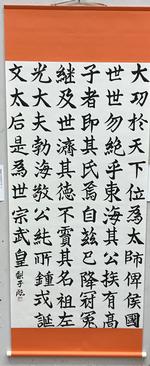 大功於天下位為太師俾侯國
世世勿絕乎東海其公族有高
子者即其氏焉自茲已降冠冕
継及世濟其德不霣其名祖左
光大夫勃海敬公純所鍾式誕
文太后是為世宗武皇